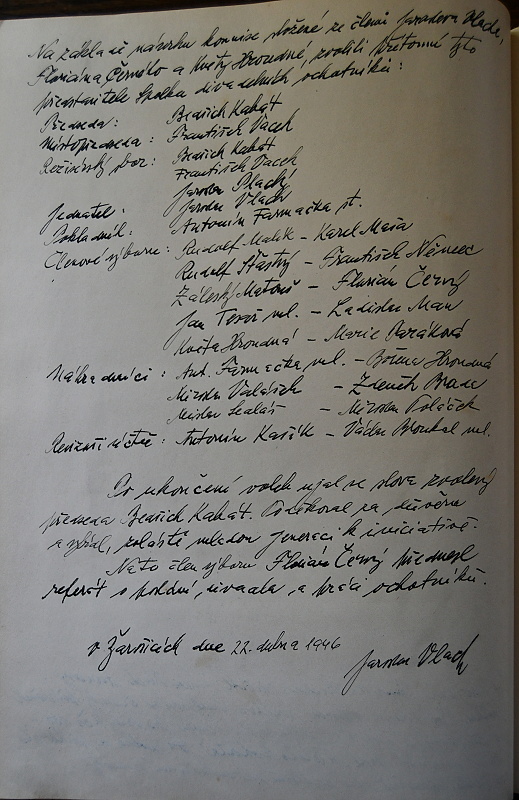 Na základě návrhu komise složené ze členů Jaroslava Vlacha,
Floriána Černého a Květy Hroudné, zvolili přítomní tyto
představitele Spolku divadelních ochotníků:
Předseda: Bedřich Kabát
Místopředseda: František Vacek
Režisérský sbor: Bedřich Kabát
František Vacek
Jaroslav Plachý
Jednatel: Jaroslav Vlach
Pokladník: Antonín Farmačka st.
Členové výboru: Rudolf Malík - Karel Maša
Rudolf Šťastný - František Němec
Záleský Matouš - Florián Černý
Jan ml. - Ladislav Man
Květa Hroudná - Marie
Náhradníci: Ant. Farmačka ml. - Božena Hroudná
Miroslav Valášek - Zdeněk
- Miroslav Poláček
Revisoři účtů: Antonín - Václav ml.
Po ukončení voleb ujal se slova zvolený
předseda Bedřich Kabát. Poděkoval za důvěru
a vyzval, zvláště mladou generaci k iniciativě.
Nato člen výboru Florián Černý přednesl
referát o poslání divadla a práci ochotníků.
V Žarošicích dne 22. dubna 1946
Jaroslav Vlach